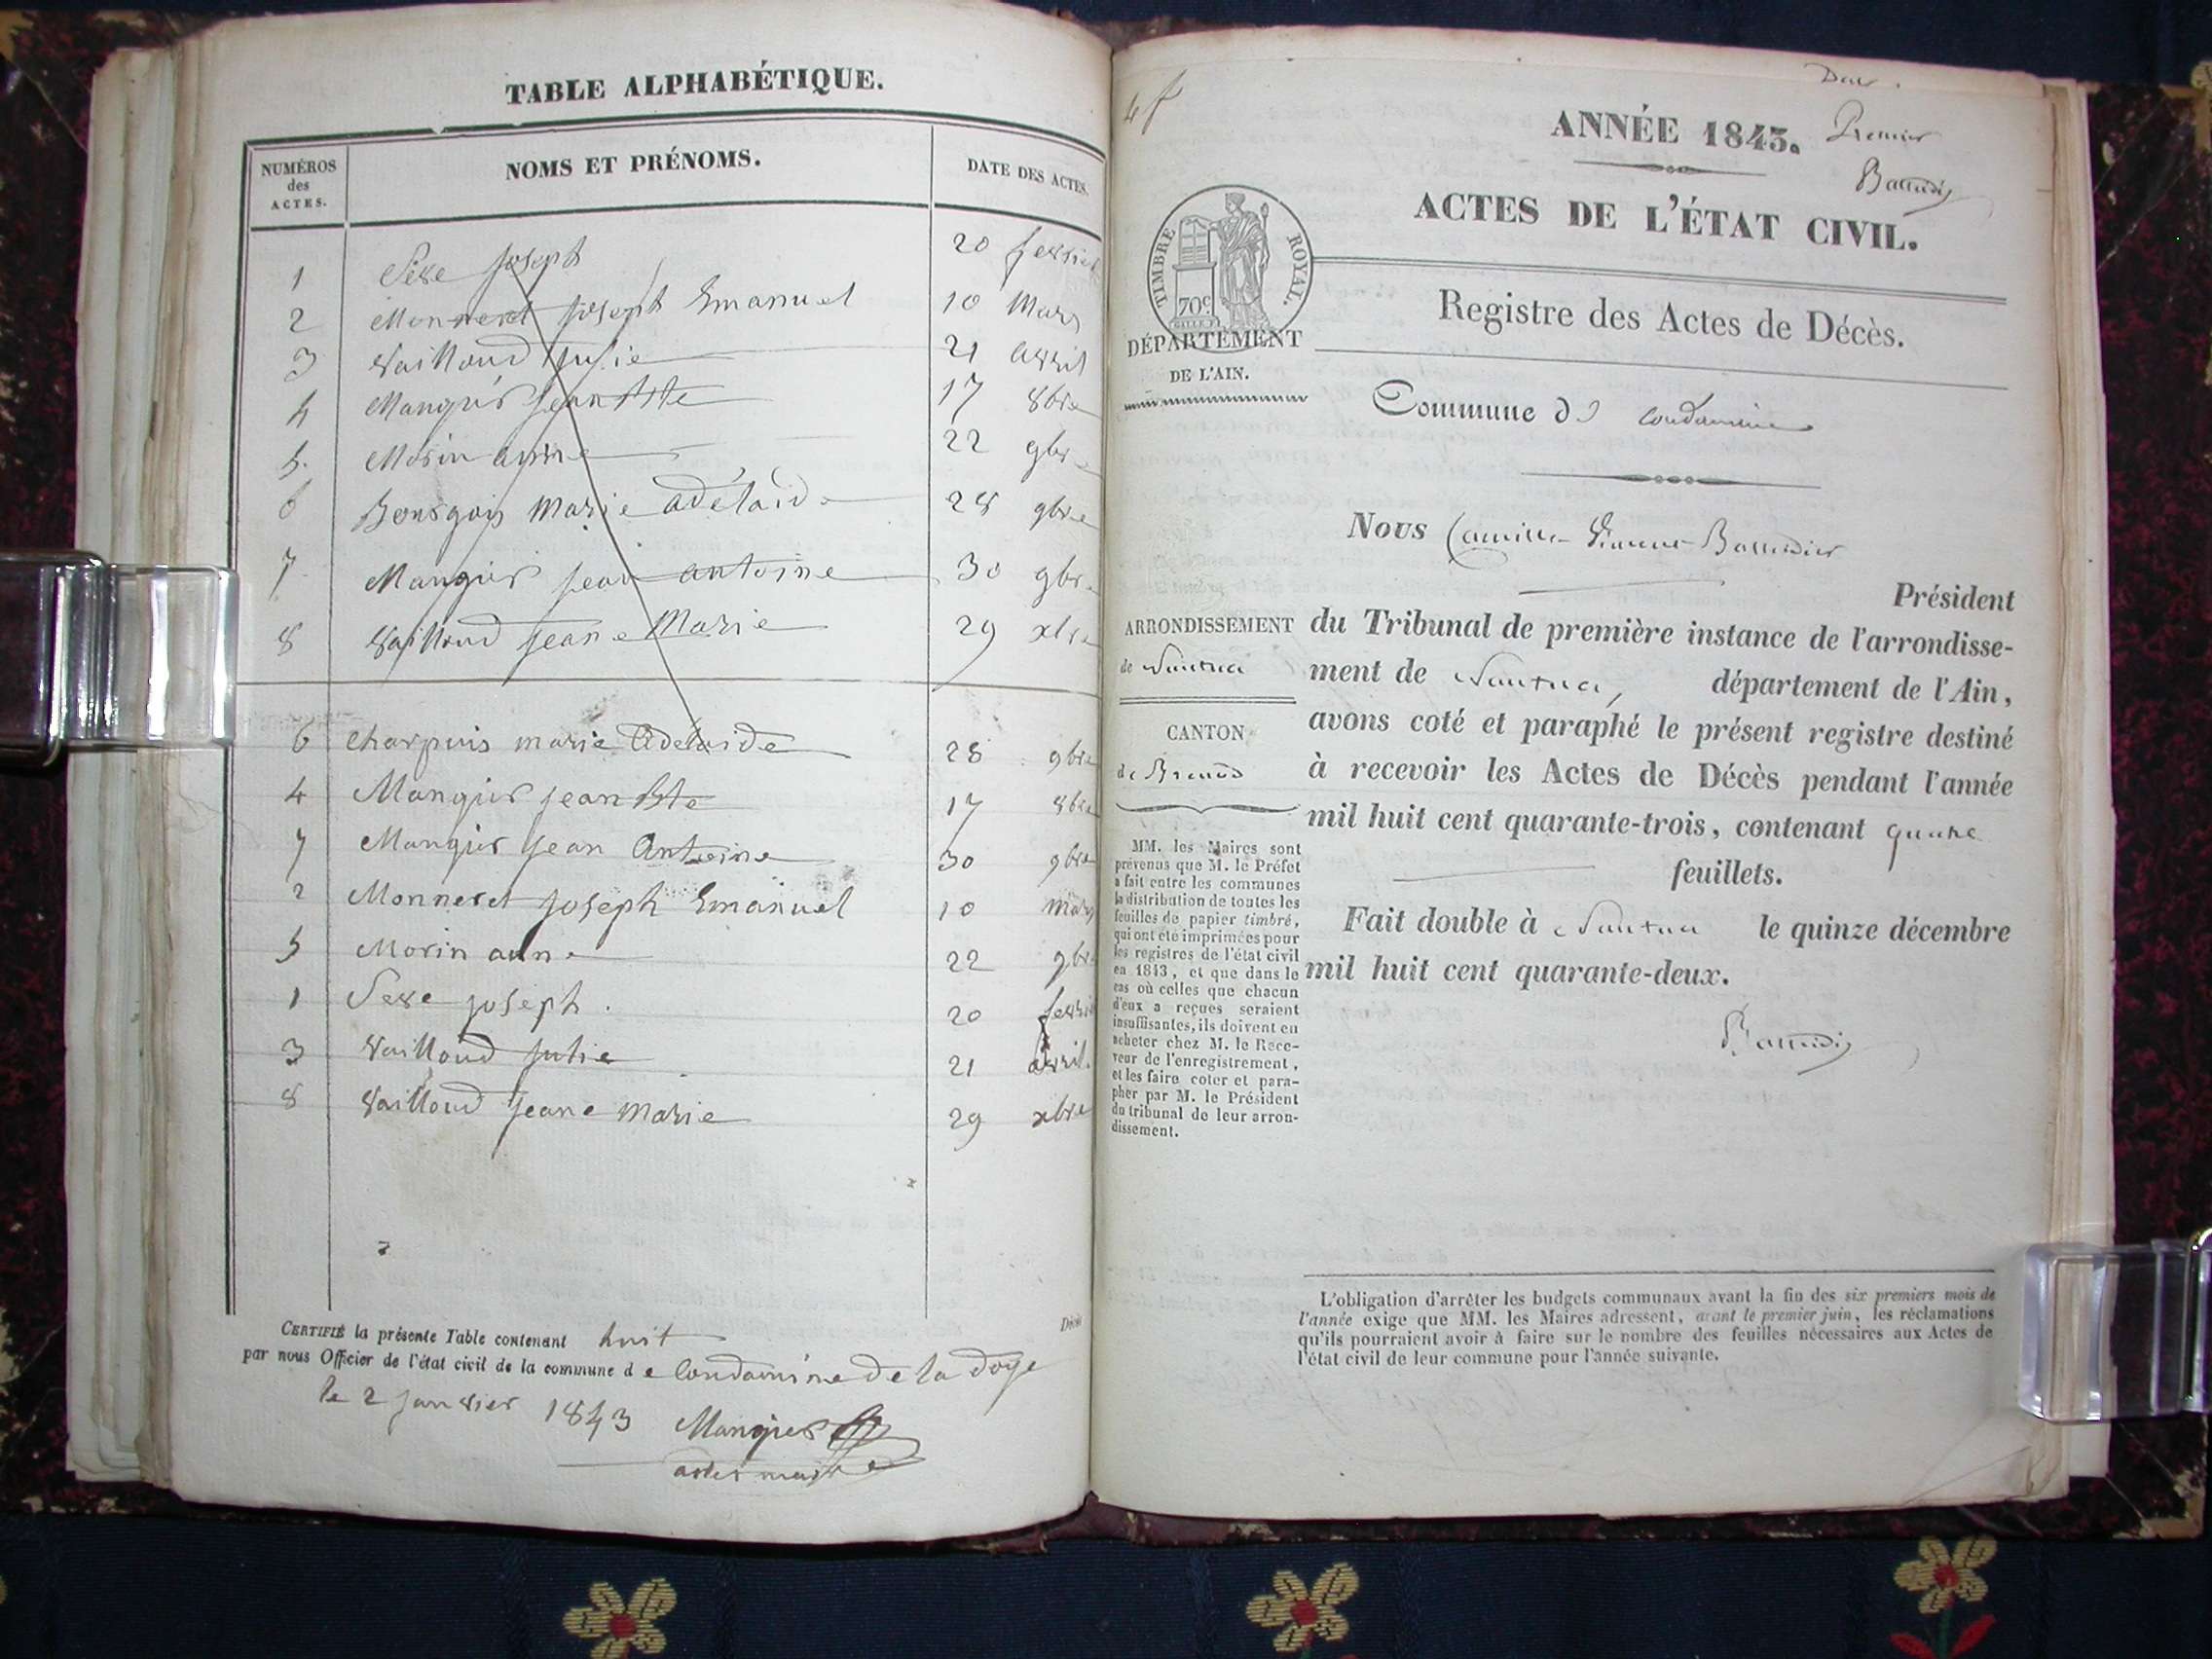 TABLE ALPHABÉTIQUE.
NUMÉROS des ACTES. NOMS ET PRÉNOMS. DATE DES ACTES.
1 Seve joseph 20 fevrier
2 Monneret joseph Emanuel 10 Mars
3 Vailloud julie 21 avril
4 Mangier jean Bte 17 8bre
5 Morin anne 22 9bre
6 Bourgois Marie adélaide 28 9bre
7 Mangier jean antoine 30 9bre
8 Vailloud jeane Marie 29 xbre
6 Charpuis marie Adelaide 28 9bre
4 Mangier jean Bte 17 8bre
7 Mangier jean Antoine 30 9bre
2 Monneret joseph Emanuel 10 mars
5 Morin anne 22 9bre
1 Seve joseph. 20 fevrier
3 Vailloud julie 21 avril.
8 Vailloud jeane marie 29 xbre
CERTIFIÉ la présente Table contenant huit
par nous Officier de l'état civil de la commune de Condamine de la doye
le 2 janvier 1843 Mangier
maire
4 f
ANNÉE 1843. Premier
Balludier
ACTES DE L'ÉTAT CIVIL.
TIMBRE ROYAL.
70c
DÉPARTEMENT
DE L'AIN.
Registre des Actes de Décès.
Commune de Condamine
Nous Camille Vincent Balludier
Président
ARRONDISSEMENT
de Nantua
CANTON
de Brenod
MM. les Maires sont
prévenus que M. le Préfet
a fait entre les communes
la distribution de toutes les
feuilles de papier timbré,
qui ont été imprimées pour
les registres de l'état civil
en 1843, et que dans le
cas où celles que chacun
d'eux a reçues seraient
insuffisantes, ils doivent en
acheter chez M. le Rece-
veur de l'enregistrement,
et les faire coter et para-
pher par M. le Président
du tribunal de leur arron-
dissement.
du Tribunal de première instance de l'arrondisse-
ment de Nantua, département de l'Ain,
avons coté et paraphé le présent registre destiné
à recevoir les Actes de Décès pendant l'année
mil huit cent quarante-trois, contenant quatre
feuillets.
Fait double à Nantua le quinze décembre
mil huit cent quarante-deux.
Balludier
L'obligation d'arrêter les budgets communaux avant la fin des six premiers mois de
l'année exige que MM. les Maires adressent, avant le premier juin, les réclamations
qu'ils pourraient avoir à faire sur le nombre des feuilles nécessaires aux Actes de
l'état civil de leur commune pour l'année suivante.